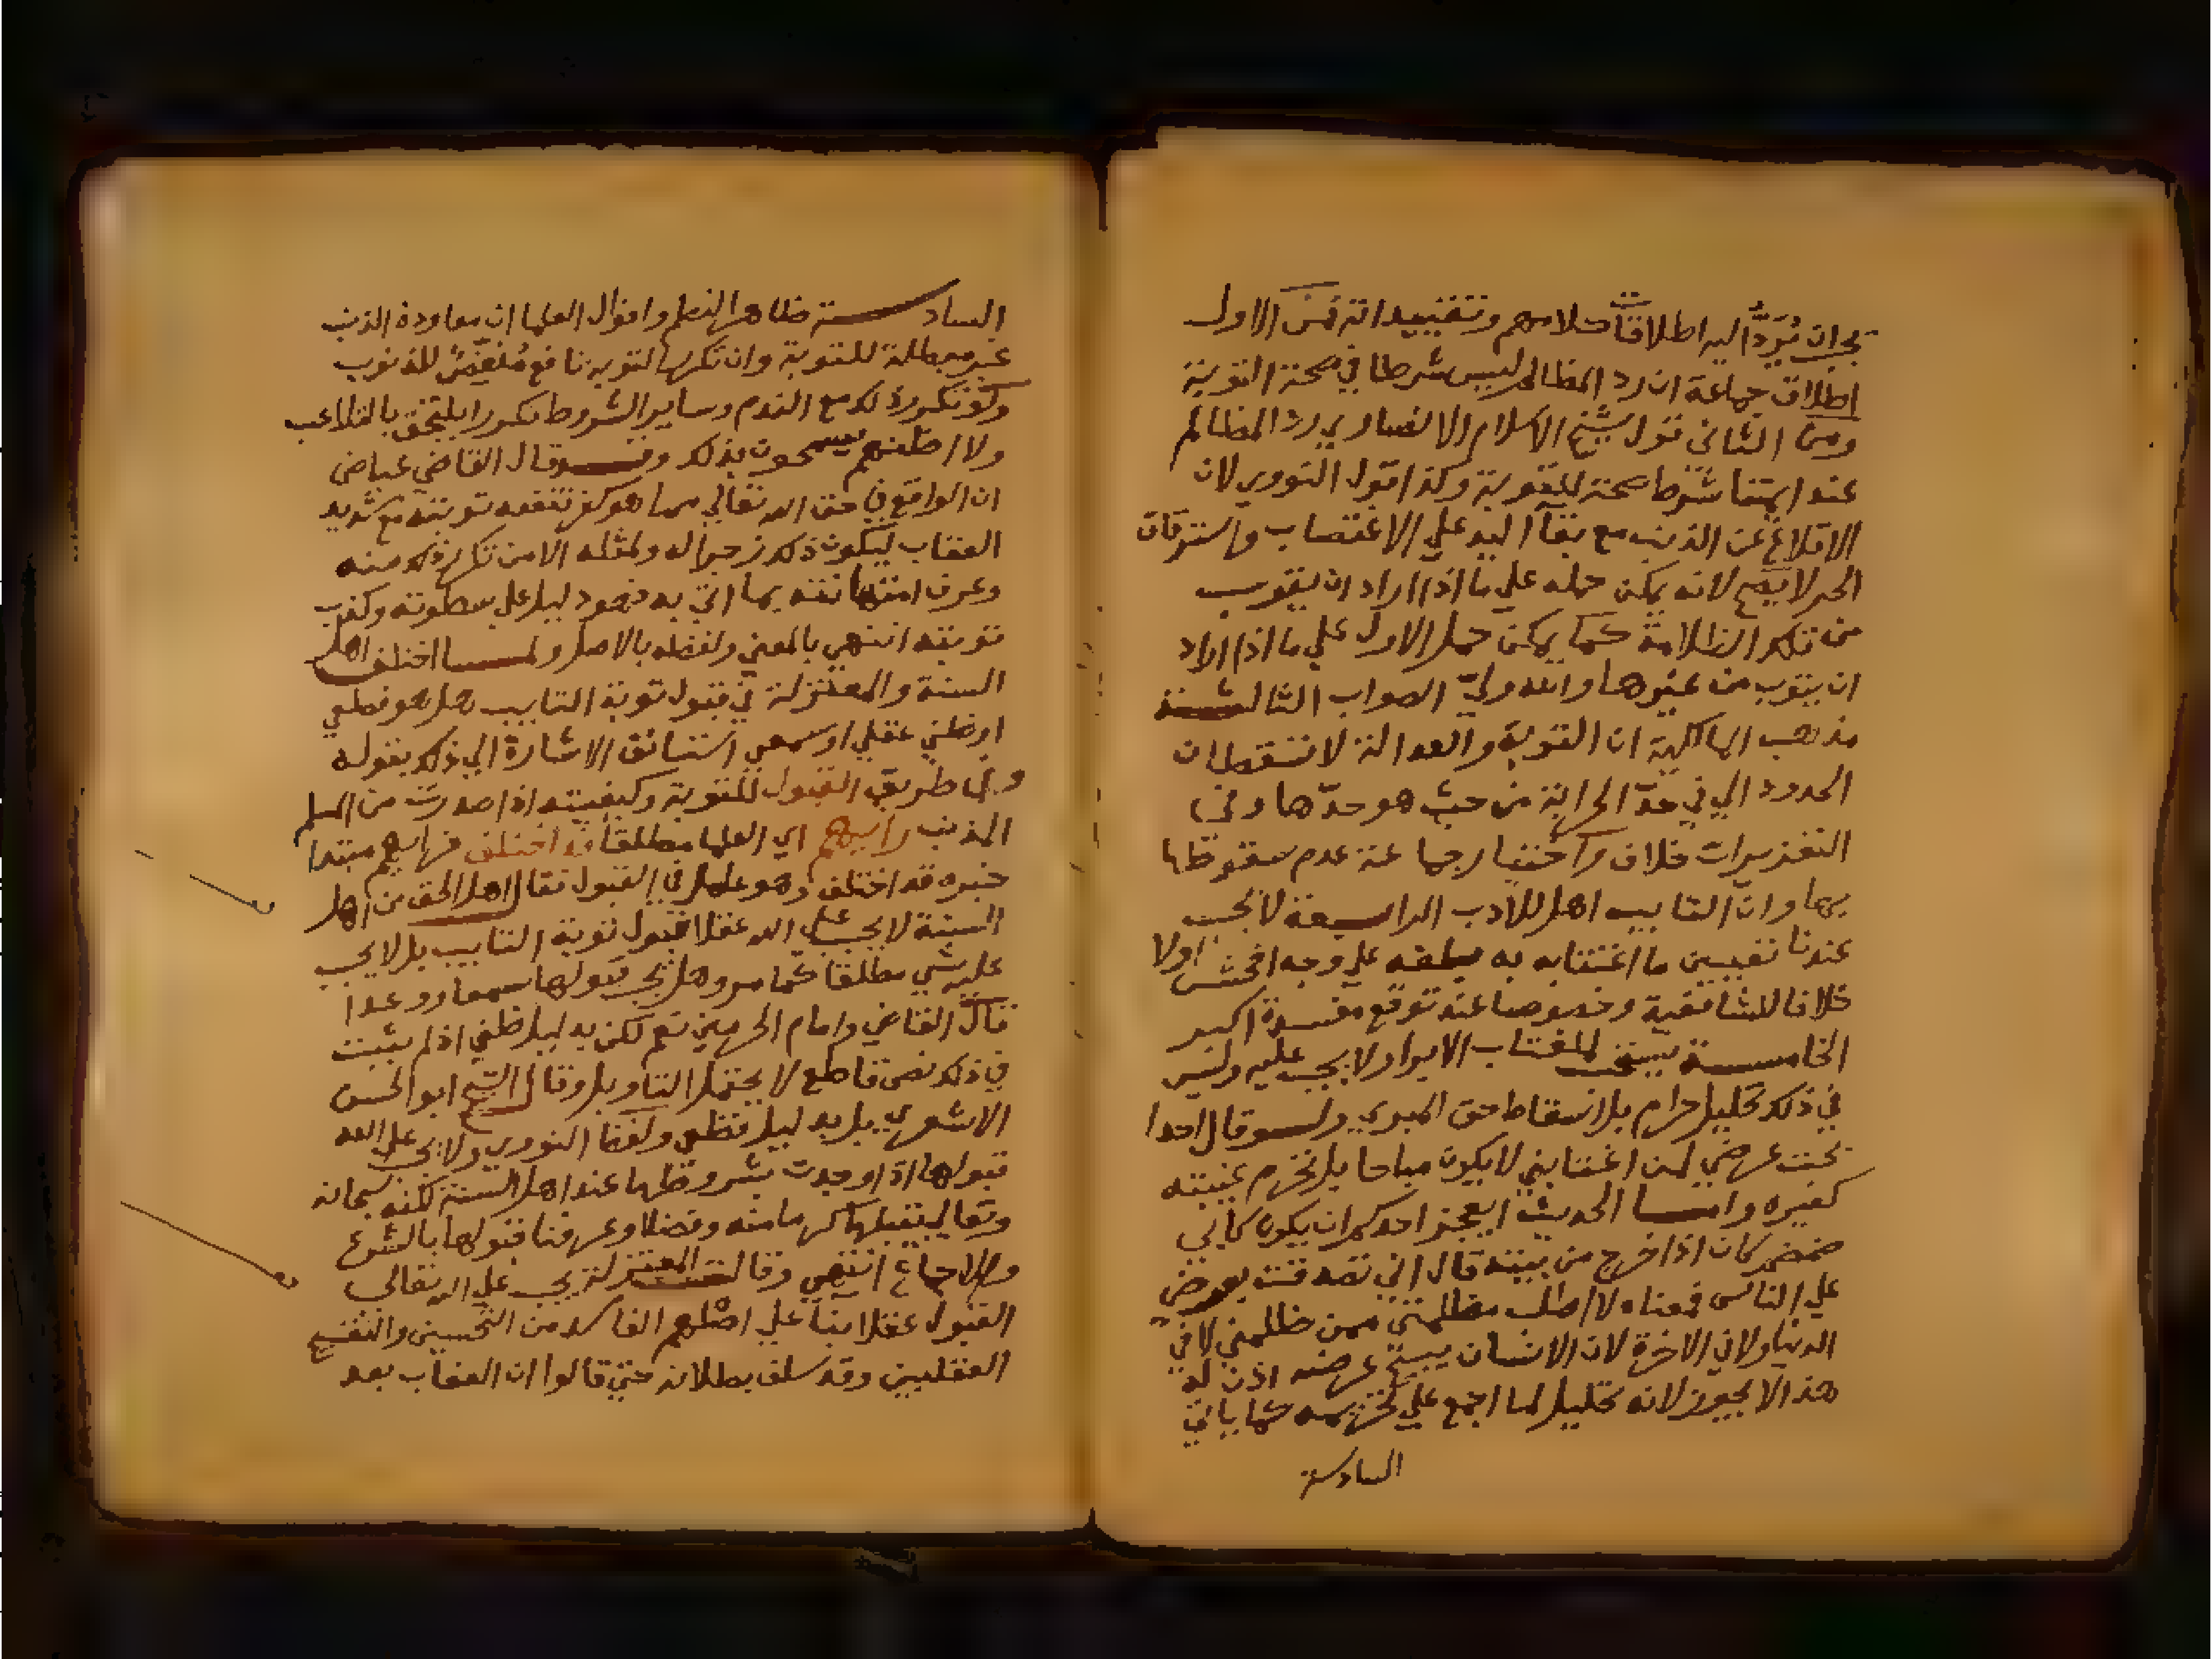 يجب ان تُرَدَّ اليه اطلاقات كلامهم وتقييداته فمن الاول
اطلاق جماعة ان رد المظالم ليس شرطا في صحة التوبة
ومن الثاني قول شيخ الاسلام الانصاري رد المظالم
عند ايمتنا شرط صحة للتوبة وكذا قول النووي لان
الاقلاع عن الذنب مع بقآ اليد علي الاغتصاب واسترقاق
الحر لا يصح لانه يمكن حمله علي ما اذا اراد ان يتوب
من تلك الظلامة كما يمكن حمل الاول علي ما اذا اراد
ان يتوب من غيرها والله ولي الصواب الثالثة
مذهب المالكية ان التوبة والعدالة لا تسقطان
الحدود الي في حدّ الحرابة من حيث هو حدّها وفي
التعزيرات خلاف رجما عنة عدم سقوطها
بها وان التايب اهل للادب الرابعة لا يجب
عندنا تعيين ما اغتابه به بلغه علي وجه افحش اولا
خلافا للشافعية وخصوصا عند توقع مفسدة اكبر
الخامسة يستحب للمغتاب الابرا ولا يجب عليه وليس
في ذلك تحليل حرام بل اسقاط حق المبري ولو قال احدا
بحت عرضي لمن اغتابني لا يكون مباحا بل تحرم غيبته
كغيره واما الحديث ايعجز احدكم ان يكون كابي
ضمضم كان اذا خرج من بيته قال اني تصدقت بعرضي
علي الناس فمعناه لا اطلب مظلمتي ممن ظلمني لا في
الدنيا ولا في الاخرة لان الانسان يبيح عرضه اذن له
هذا لا يجوز لانه تحليل لما اجمع علي تحريمه كما ياتي
السادسة
السادسة ظاهر النظم واقوال العلما ان معاودة الذنب
غير مبطلة للتوبة وان تكرر التوبة نافع للذنوب
ولو تكررة لكن مع الندم وساير الشروط تكررا يلتحق بالتلاعب
ولا اظنهم يسمحون بذلك وقد قال القاضي عياض
ان الواقع في حق الله تعالي مما هو كفر تنفعه توبته مع شديد
العقاب ليكون ذلك زجرا له ولمثله الا من تكرر ذلك منه
وعرف استهانته بما اتي به فهو دليل علي سطوته وكذب
توبته انتهي بالمعني ولفظه بالاصل ولما اختلف اهل
السنة والمعتزلة في قبول توبة التايب هل هو قطعي
او ظني عقلي او سمعي استانف الاشارة الي ذلك بقوله
وفي طريق القبول للتوبة وكيفيته اذا صدرت من المسلم
المذنب رايهم اي العلما مطلقا قد اختلف فرايهم مبتدا
خبره قد اختلف وهو عامل في القبول فقال اهل الحق من اهل
السنة لا يجب علي الله عقلا قبول توبة التايب بل لا يجب
عليه شي مطلقا كما مر وهل يجب قبولها سمعا ووعدا
قال القاضي وامام الحرمين نعم لكن بدليل ظني اذ لم يثبت
في ذلك نص قاطع لا يحتمل التاويل وقال الشيخ ابو الحسن
الاشعري بل بدليل قطعي ولفظ النووي ولا يجب علي الله
قبولها اذا وجدت بشروطها عند اهل السنة لكنه سبحانه
وتعالي يقبلها كرما منه وفضلا وعرفنا قبولها بالشرع
والاجماع انتهي وقالت المعتزلة يجب علي الله تعالي
القبول عقلا بنآ علي اصلهم الفاسد من التحسين والتقبيح
العقليين وقد سلف بطلانه حتي قالوا ان العقاب بعد